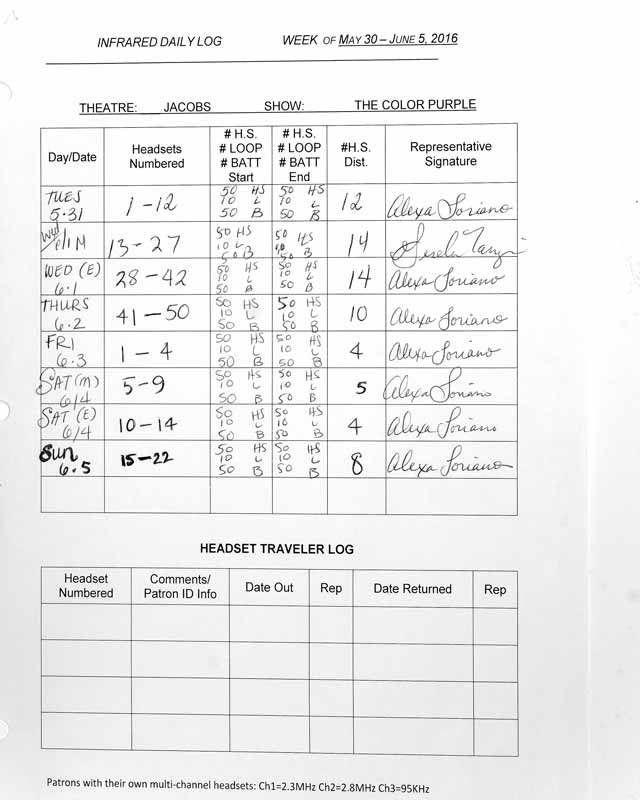 INFRARED DAILY LOG WEEK OF MAY 30 – JUNE 5, 2016
THEATRE: JACOBS SHOW: THE COLOR PURPLE
Day/Date Headsets Numbered # H.S. # LOOP # BATT Start # H.S. # LOOP # BATT End #H.S. Dist. Representative Signature
TUES 5.31 1-12 50 HS 10 L 50 B 50 HS 10 L 50 B 12 Alexa Soriano
Wed 13-27 50 HS 10 L 50 B 50 HS 10 L 50 B 14
WED (E) 6.1 28-42 50 HS 10 L 50 B 50 HS 10 L 50 B 14 Alexa Soriano
THURS 6.2 41-50 50 HS 10 L 50 B 50 HS 10 L 50 B 10 Alexa Soriano
FRI 6.3 1-4 50 HS 10 L 50 B 50 HS 10 L 50 B 4 Alexa Soriano
SAT (M) 6/4 5-9 50 HS 10 L 50 B 50 HS 10 L 50 B 5 Alexa Soriano
SAT (E) 6/4 10-14 50 HS 10 L 50 B 50 HS 10 L 50 B 4 Alexa Soriano
Sun 6.5 15-22 50 HS 10 L 50 B 50 HS 10 L 50 B 8 Alexa Soriano
HEADSET TRAVELER LOG
Headset Numbered Comments/ Patron ID Info Date Out Rep Date Returned Rep
Patrons with their own multi-channel headsets: Ch1=2.3MHz Ch2=2.8MHz Ch3=95KHz